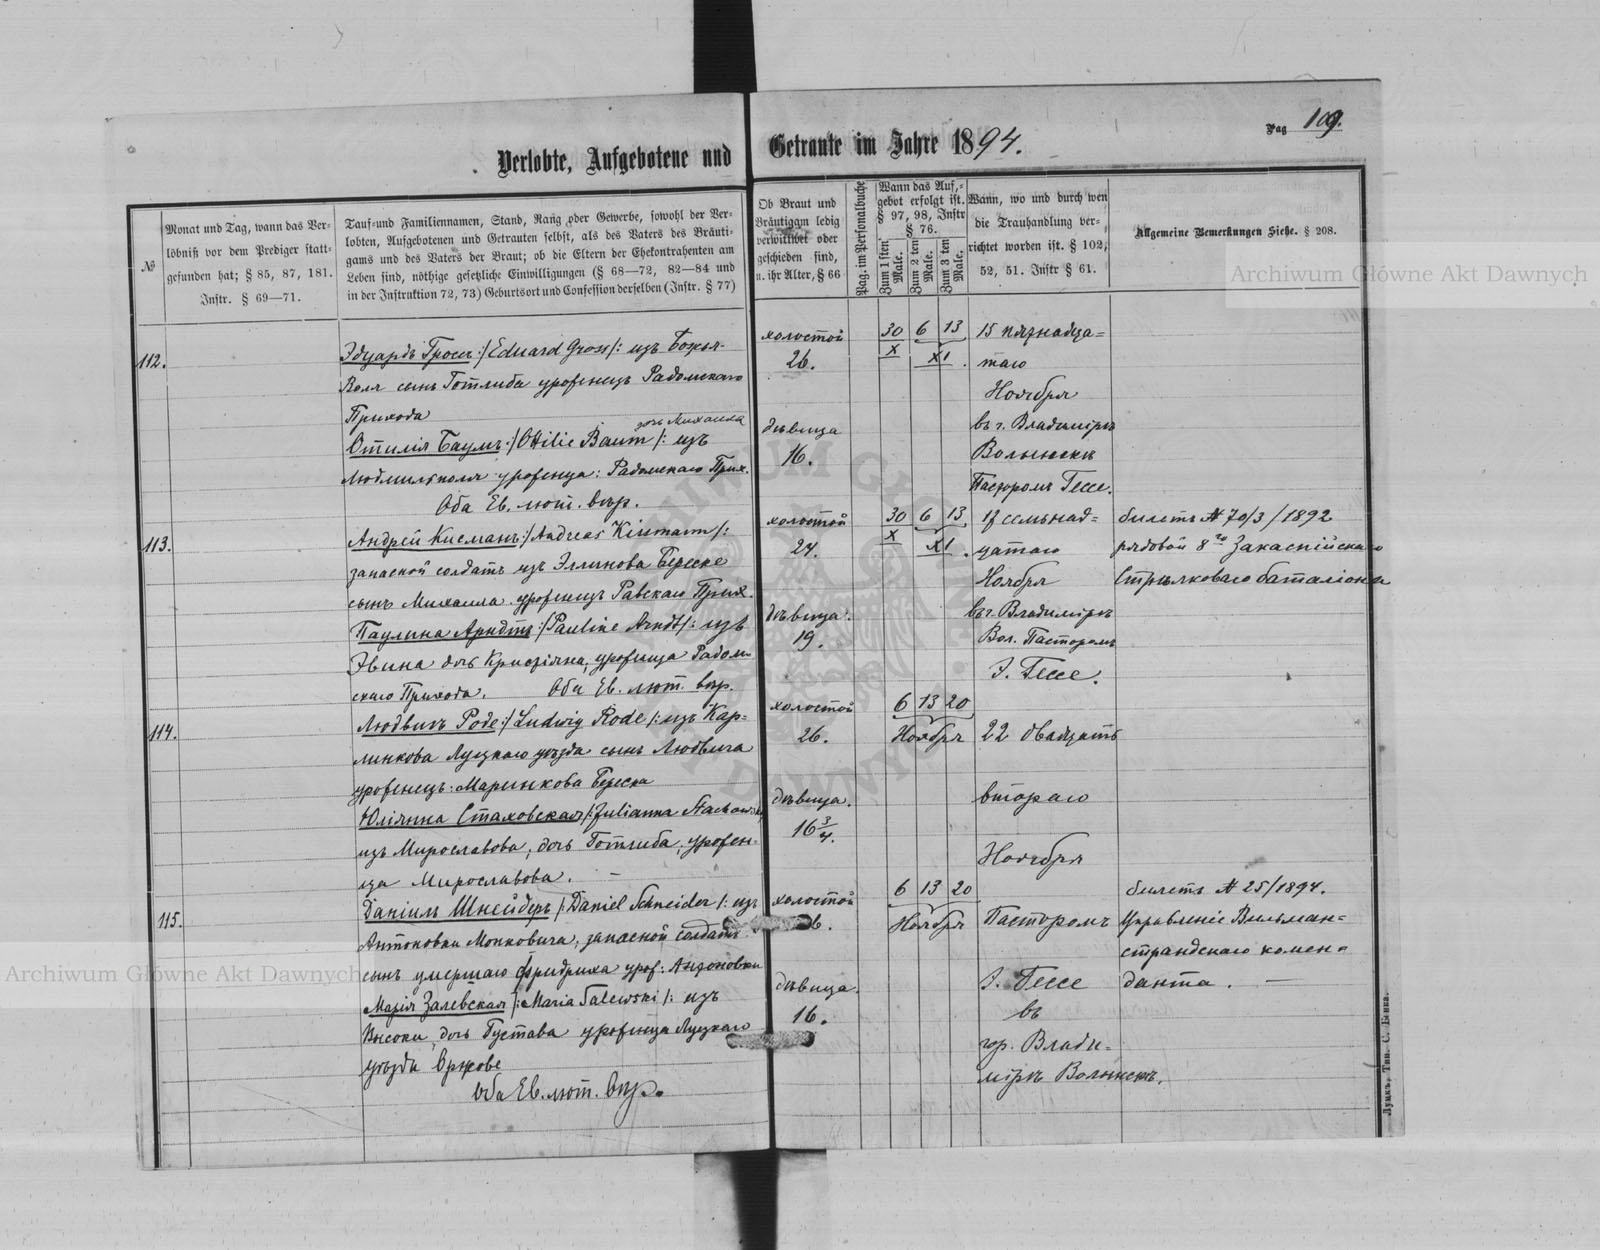 Verlobte, Aufgebotene und Getraute im Jahre 1894.
Pag 109.
№
Monat und Tag, wann das Ver-
löbniß vor dem Prediger statt-
gefunden hat; § 85, 87, 181.
Instr. § 69—71.
Tauf-und Familiennamen, Stand, Rang oder Gewerbe, sowohl der Ver-
lobten, Aufgebotenen und Getrauten selbst, als des Vaters des Bräuti-
gams und des Vaters der Braut; ob die Eltern der Ehekontrahenten am
Leben sind, nöthige gesetzliche Einwilligungen (§ 68—72, 82—84 und
in der Instruktion 72, 73) Geburtsort und Confession derselben (Instr. § 77)
Ob Braut und
Bräutigam ledig
verwittwet oder
geschieden sind,
u. ihr Alter, § 66
Pag. im Personalbuche
Wann das Auf-
gebot erfolgt ist.
§ 97, 98, Instr
§ 76.
Zum 1 sten Male.
Zum 2 ten Male.
Zum 3 ten Male.
Wann, wo und durch wen
die Trauhandlung ver-
richtet worden ist. § 102,
52, 51. Instr § 61.
Allgemeine Bemerkungen Siehe. § 208.
Archiwum Główne Akt Dawnych
112.
Эдуардъ Гроссъ :/ Eduard Gross /: изъ Божья-
Воля сынъ Готлиба уроженецъ Радомскаго
Прихода
дочь Михаила
Отилія Баумъ :/ Ottilie Baum /: изъ
Людмильполя уроженца: Радомскаго Прих.
Оба Ев. лют. вѣр.
холостой
26.
дѣвица
16.
30 6 13
X XI.
15 пятнадца=
таго
Ноября
въ г. Владимірѣ
Волынскѣ
Пасторомъ Гессе.
113.
Андрей Кисманъ :/ Andreas Kissmann /:
запасной солдатъ изъ Эллинова Береске
сынъ Михаила уроженецъ Равскаго Прих.
Паулина Арндтъ :/ Pauline Arndt /: изъ
дочь Кристіяна, уроженца Радом-
скаго Прихода. Оба Ев. лют. вѣр.
холостой
24.
дѣвица.
19.
30 6 13
X XI.
17 семьнад=
цатаго
Ноября
въ г. Владимірѣ
Вол. Пасторомъ
Э. Гессе.
билетъ № 70/3 / 1892
рядовой 8го Закаспійскаго
Стрѣлковаго баталіона
114.
Людвигъ Роде :/ Ludwig Rode /: изъ Кар=
линкова Луцкаго уѣзда сынъ Людвига
уроженецъ: Маринкова Береска
Юліянна Стаховская /: Julianna Stachowsky
изъ Мирославова, дочь Готлиба, урожен-
ца Мирославова.
холостой
26.
дѣвица.
16 3/4.
6 13 20
Ноября
22 двадцать
втораго
Ноября
115.
Даніилъ Шнейдеръ /: Daniel Schneider /: изъ
Антоновки Монковича, запасной солдатъ
сынъ умершаго Фридриха урож: Антоновки
Марія Залевская /: Maria Salewski /: изъ
дочь Густава уроженца Луцкаго
уѣзда
Оба Ев. лют. вѣр.
холостой
26.
дѣвица.
16.
6 13 20
Ноября
Пасторомъ
Э. Гессе
въ
гор. Влади-
мірѣ Волынскѣ.
билетъ № 25/1894.
Управленіе Вильман=
страндскаго комен=
данта.
Archiwum Główne Akt Dawnych
Луцкъ, Тип. С. Бенка.